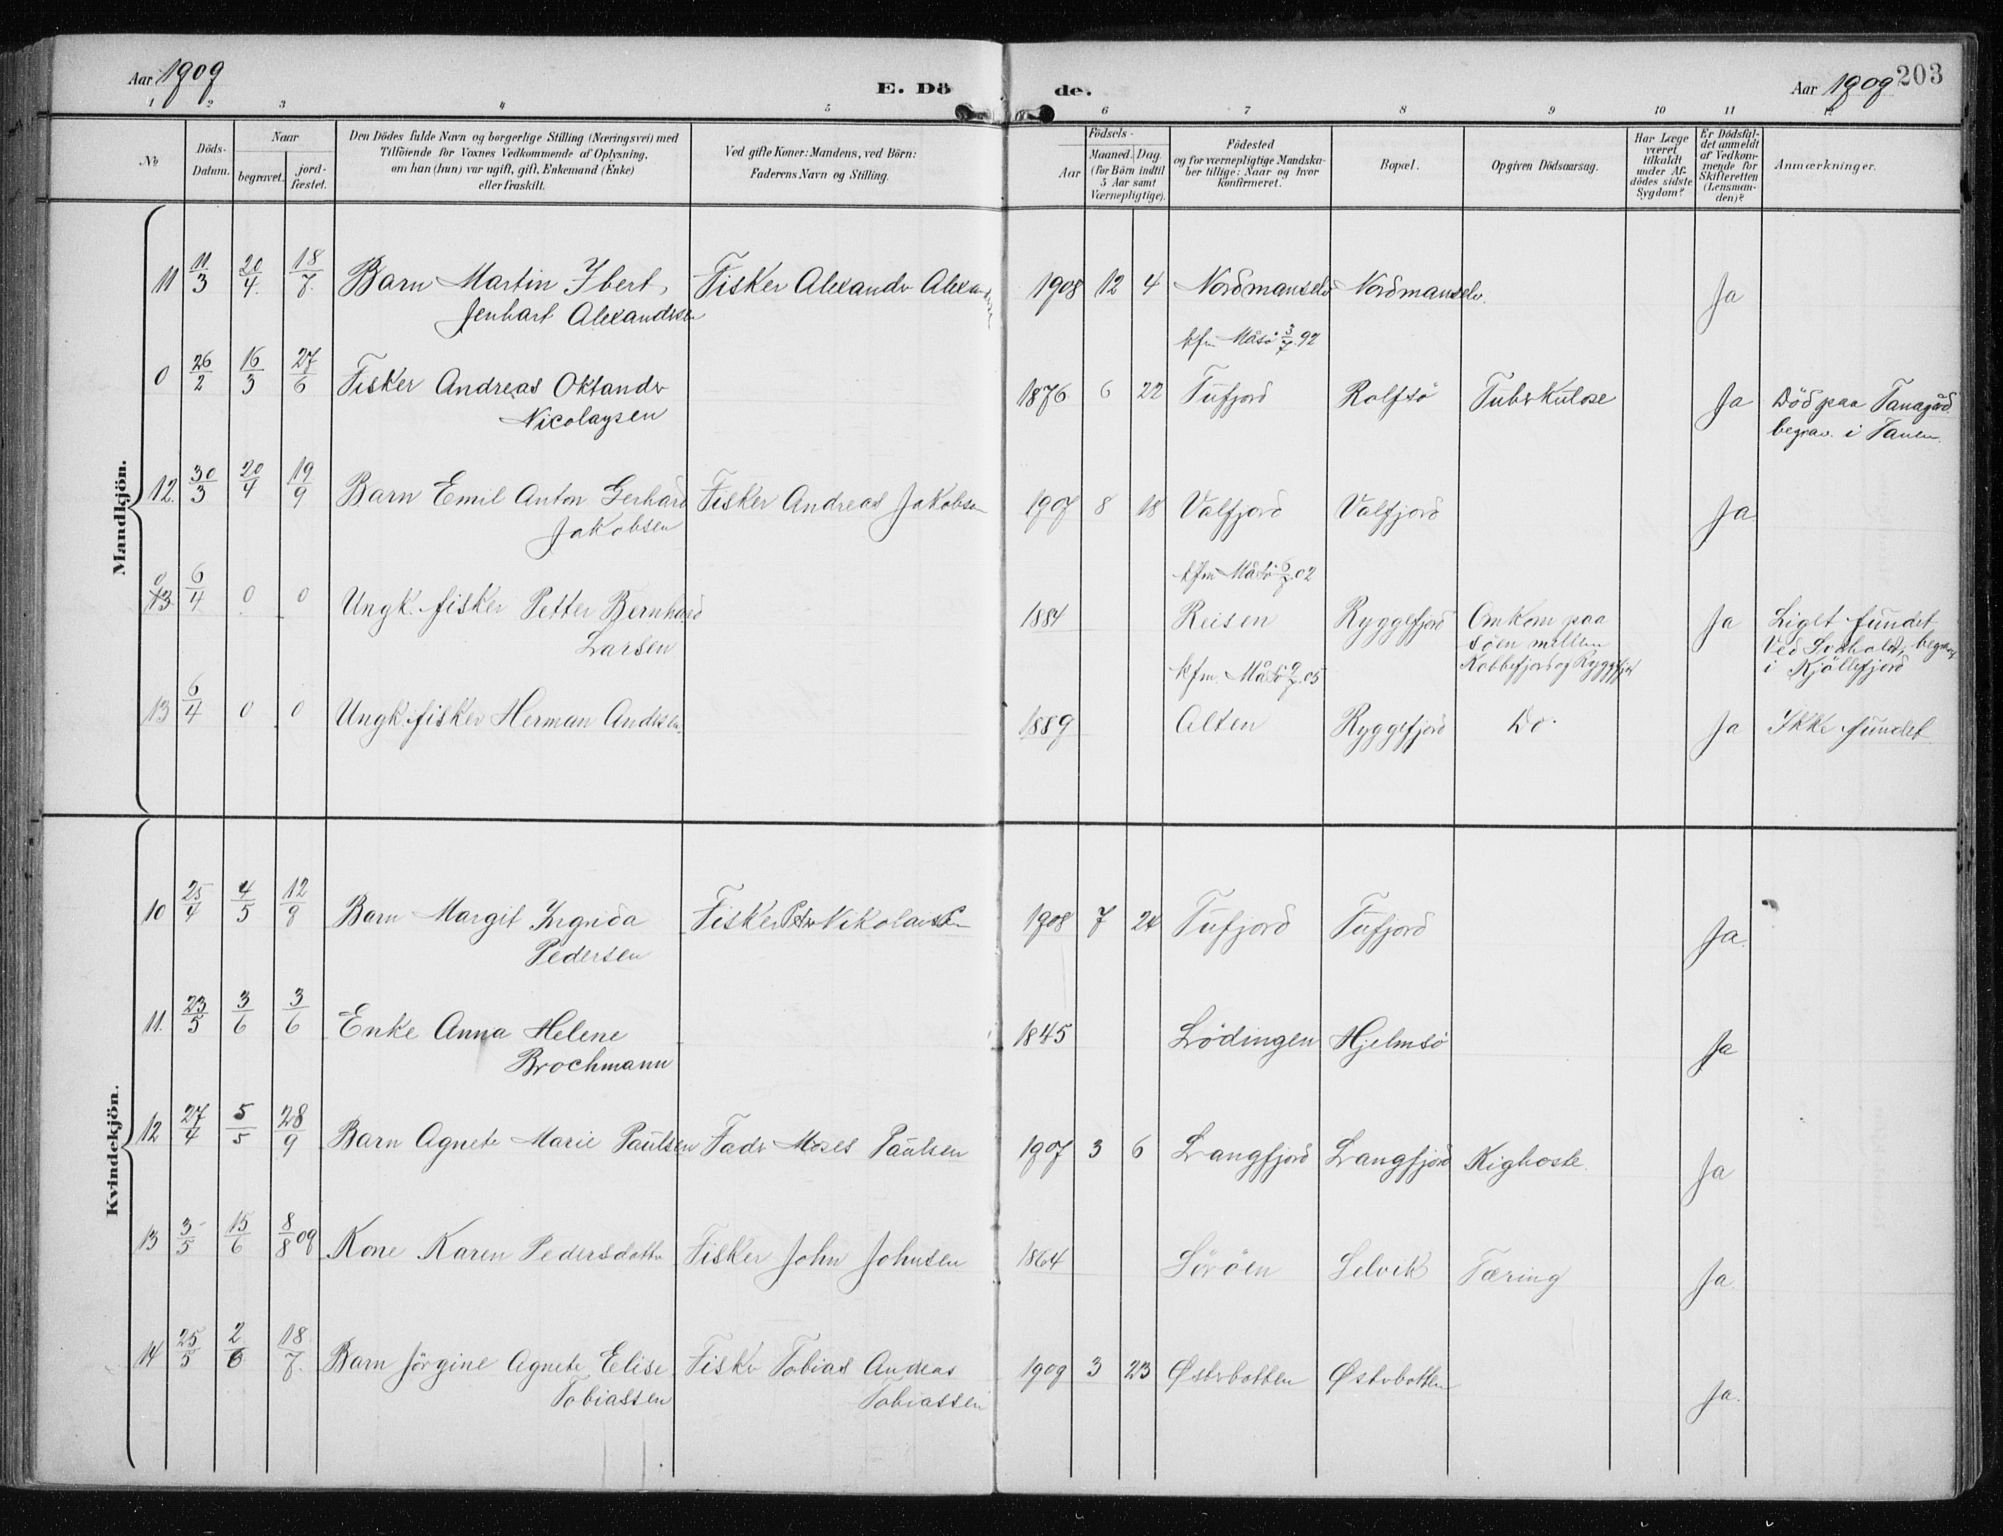 Aar 1909
E. Dö
de.
Aar 1909
203
1 2 3 4 5 6 7 8 9 10 11 12
No
Döds-
Datum.
Naar
begravet.
jord-
fæstet.
Den Dödes fulde Navn og borgerlige Stilling (Næringsvei) med
Tilföiende for Voxnes Vedkommende af Oplysning,
om han (hun) var ugift, gift, Enkemand (Enke)
eller fraskilt.
Ved gifte Koner: Mandens, ved Börn:
Faderens Navn og Stilling.
Födsels-
Aar
Maaned.
Dag.
(for Börn indtil
5 Aar samt
Værnepligtige).
Födested
og for værnepligtige Mandska-
ber tillige: Naar og hvor
konfirmeret.
Bopæl.
Opgiven Dödsaarsag.
Har Læge
været
tilkaldt
under Af-
dödes sidste
Sygdom?
Er Dödsfal-
det anmeldt
af Vedkom-
mende for
Skifteretten
(Lensman-
den)?
Anmærkninger.
Mandkjön.
11 11/3 20/4 18/7 Barn Martin Ibert Fisker Alexander 1908 12 4 Nordmanselv Nordmanselv. Ja
Jenhart Alexandersen
kfm Måsö 3/7 92
0 26/2 16/3 27/6 Fisker Andreas Oktander 1876 6 22 Tufjord Rolfsö Tuberkulose Ja Död paa Tanagård
Nicolaysen begrav. i Tanen
12. 30/3 20/4 19/9 Barn Emil Anton Gerhard Fisker Andreas Jakobsen 1907 8 18 Valfjord Valfjord Ja
Jakobsen
kfm Måsö 02
0 13 6/4 0 0 Ungk. fisker Petter Bernhard 1884 Reisen Ryggefjord Omkom paa Ja Liget fundet
Larsen söen mellem Ved begrav
Kobbefjord og Ryggefjord i Kjöllefjord
kfm. Måsö 05
13 6/4 0 0 Ungk. fisker Herman Andersen 1889 Alten Ryggefjord Do. Ja Ikke fundet
Kvindekjön.
10 25/4 4/5 12/9 Barn Margit Ingrida Fisker Peder Nikolaisen 1908 7 24 Tufjord Tufjord Ja.
Pedersen
11. 23/5 3/6 3/6 Enke Anna Helene 1845 Lödingen Hjelmsö Ja
Brochmann
12 27/4 5/5 28/9 Barn Agnete Marie Paulsen Fader Moses Paulsen 1907 3 6 Langfjord Langfjord Kighoste. Ja
13 3/5 15/6 8/8 09 Kone Karen Pedersdatter Fisker John Johnsen 1864 Söröen Selvik Tæring Ja.
14 25/5 2/6 18/7. Barn Jörgine Agnete Elise Fisker Tobias Andreas 1909 3 23 Østerbotten Østerbotten Ja.
Tobiassen Tobiassen